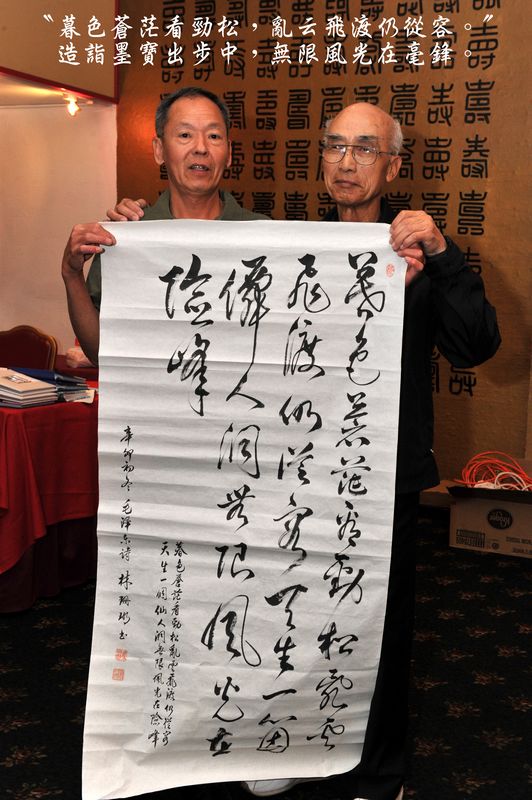 〝暮色蒼茫看勁松，亂云飛渡仍從容。〞
造詣墨寶出步中，無限風光在毫鋒。
暮色蒼茫看勁松亂雲
飛渡仍從容天生一個
僊人洞無限風光在
險峰
暮色蒼茫看勁松亂雲飛渡仍從容
天生一個仙人洞無限風光在險峰
辛卯初冬毛澤東詩 林珊彬書